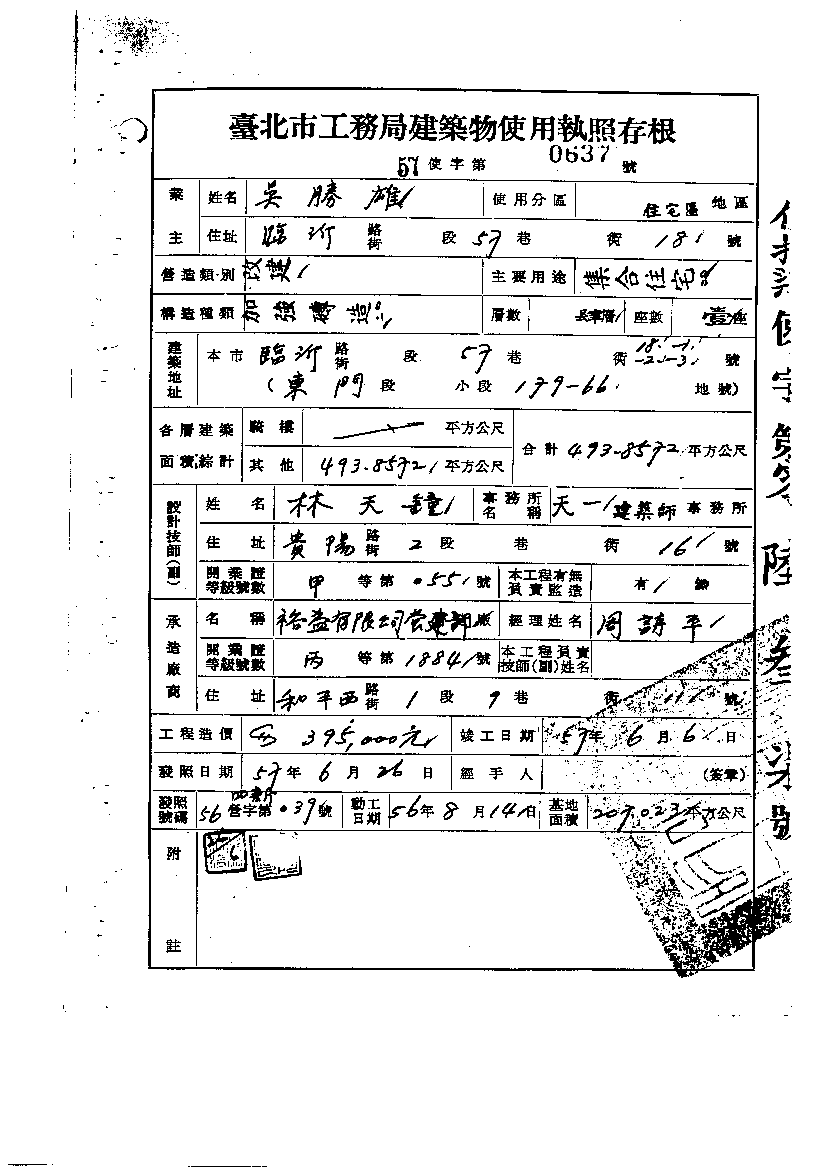 臺北市工務局建築物使用執照存根
57 使字第 0637 號
業主 姓名 吳勝雄 使用分區 住宅區 地區
住址 臨沂 路街 段 57 巷 衖 18 號
營造類別 改建 主要用途 集合住宅
構造種類 加強磚造 層數 座數 壹座
建築地址 本市 臨沂 路街 段 57 巷 衖 18.-1. -2.-3. 號
(東門 段 小段 179-66 地號)
各層建築面積綜計 騎樓 平方公尺 合計 493.8572 平方公尺
其他 493.8572 平方公尺
設計技師(副) 姓名 林天鐘 事務所名稱 天一建築師事務所
住址 貴陽 路街 2 段 巷 衖 16 號
開業證等級號數 甲 等第 055 號 本工程有無負責監造 有
承造廠商 名稱 裕益有限公司營建部廠 經理姓名 周
開業證等級號數 丙 等第 1884 號 本工程負責技師(副)姓名
住址 和平西 路街 1 段 9 巷 衖 11 號
工程造價 395,000元 竣工日期 57年 6月 6日
發照日期 57年 6月 26日 經手人 (簽章)
發照號碼 56 營字第 039 號 動工日期 56年 8月 14日 基地面積 207.023 平方公尺
附註
使字第零陸參柒號